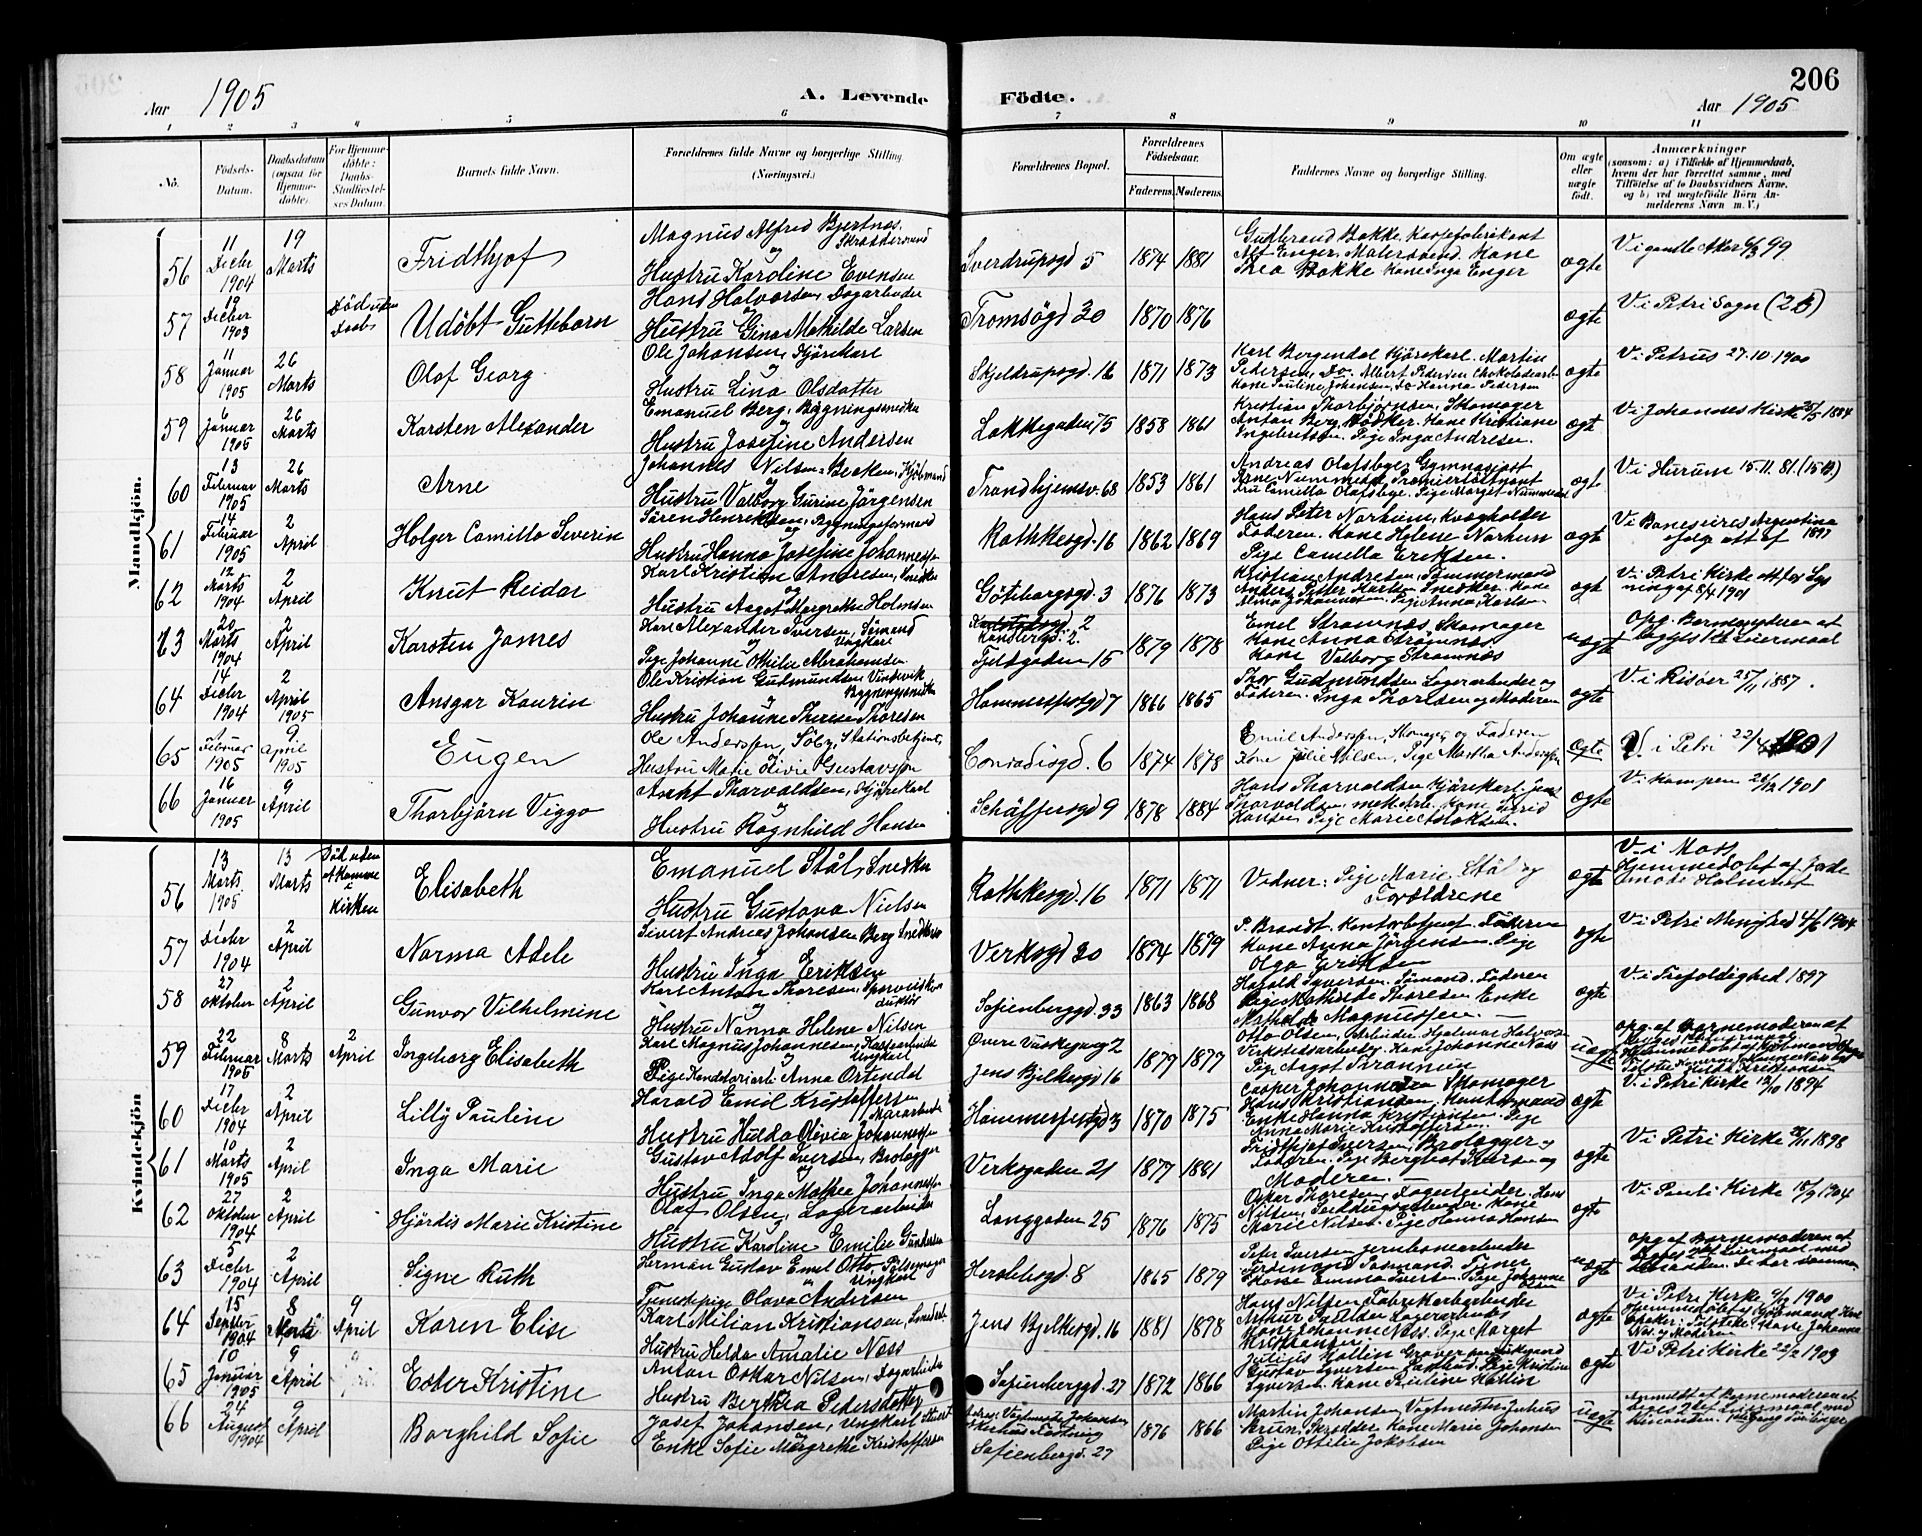 206
Aar 1905
A. Levende
Födte.
Aar 1905
1 2 3 4 5 6 7 8 9 10 11
No.
Födsels-
Datum.
Daabsdatum
(ogsaa for
Hjemme-
döbte).
For Hjemme-
döbte:
Daabs-
Stadfæstel-
ses Datum.
Barnets fulde Navn.
Forældrenes fulde Navne og borgerlige Stilling
(Næringsvei.)
Forældrenes Bopæl.
Forældrenes
Födselsaar.
Faderens. Moderens.
Faddernes Navne og borgerlige Stilling.
Om ægte
eller
uægte
født.
Anmærkninger
(saasom: a) i Tilfælde af Hjemmedaab,
hvem der har forrettet samme, med
Tilföielse af to Daabsvidners Navne,
og b) ved uægtefödte Börn An-
melderens Navn m. V.)
Mandkjön.
56
11
Decbr
1904
19
Marts
Fridthjof
Magnus Alfred Bjertnæs
Skræddersvend
og
Hustru Karoline Evensen
Sverdrupsgd 5
1874 1881
Gudbrand Bakke, Kassefabrikant
Alf Enger, Malersvend. Kone
Thea Bakke Kone Inga Enger
ægte
V. i gamle Aker 6/3 99
57
19
Decber
1903
Död uden
Daab
Udöbt Guttebarn
Hans Halvorsen, Dagarbeider
Hustru Gina Mathilde Larsen
Tromsögd 30
1870 1876
ægte
V. i Petri Sogn (2 B)
58
11
Januar
1905
26
Marts
Olaf Georg
Ole Johansen, Kjörekarl
Hustru Lina Olsdatter
Skjeldrupsgd. 16
1871 1873
Karl Bergendal Kjörekarl. Martin
Pedersen, Do. Albert Pedersen Chokoladearb.
Kone Pauline Johansen, Do Hanna Pedersen
ægte
V. i Petrus 27.10.1900
59
6
Januar
1905
26
Marts
Karsten Alexander
Emanuel Berg, Bygningssnedker
Hustru Josefine Andersen
Lakkegaden 75
1858 1861
Kristian Thorbjörnsen, Skomager
Anton Berg, Bödker. Kone Kristiane
Ingebretsen. Pige Inga Andresen.
ægte
V. i Johannes Kirke 25/5 1884
60
13
Februar
1905
26
Marts
Arne
Johannes Nilsen Bakken, Kjöbmand
og
Hustru Valborg Gurine Jörgensen
Trondhjemsv. 68
1853 1861
Andreas Olafsbye, Gymnasiast
Arne Nummedal, Premierlöitnant
Fru Camilla Olafsbye. Pige Margit Nummedal
ægte
V. i Hurum 15.11.81.
61
14
Februar
1905
2
April
Holger Camillo Severin
Sören Henriksen, Bygningsformand
og
Hustru Hanna Josefine Johannessen
Rathkesgd. 16
1862 1869
Hans Peter Narhum, Kvægholder
Faderen. Kone Helene Narhum
Pige Camilla Eriksen.
ægte
V. i Buenos aires Argentina
ifölge att. af 1897
62
12
Marts
1904
2
April
Knut Reidar
Karl Kristian Andresen, Snedker
og
Hustru Aagot Margrethe Holmsen
Göteborgsgd. 3
1876 1873
Kristian Andresen, Tömmermand
Anders Petter Karlsen Snedker. Kone
Alma Johannessen, Pige Anna Karlsen
ægte
V. i Petri Kirke att. for Lys
ning af 8/4 1901
63
20
Marts
1904
2
April
Karsten James
Karl Alexander Iversen, Sömand
Ungkarl
og
Pige Johanne Othilie Abrahamsen
2
Tjeldgaden 15
1879 1878
Emil Strömnæs, Skomager
Kone Anna Strömnæs
Kone Valborg Strömnæs
uægte
Opg. Barnemoderen at
begges 1ste Leiermaal
64
14
Decber
1904
2
April
1905
Ansgar Kaurin
Ole Kristian Gudmundsen Vindsvik
Bygningssnedker
og
Hustru Johanne Therese Thoresen
Hammerfestgd 7
1866 1865
Thor Gudmundsen Lagerarbeider og
Faderen. Inga Thorsen og Moderen
ægte
V. i Risöer 25/11 1887.
65
Februar
1905
9
April
1905
Eugen
Ole Anderssen, Solby, Stationsbetjent,
Hustru Marie Livie Gustavssen
Conradisgd. 6
1874 1878
Emil Anderssen, Skomager og Faderen
Kone Julie Nilsen, Pige Martha Anderssen
ægte
V. i Petri 22/4 1901
66
16
Januar
1905
9
April
Thorbjörn Viggo
Arnt Thorvaldsen, Kjörekarl
og
Hustru Ragnhild Hansen
Schäffersgd 9
1878 1884
Hans Thorvaldsen Kjörekarl. Jens
Thorvaldsen mek. Arb. Kone Sigrid
Hansen Pige Marie Isaksen.
ægte
V. i Kampen 26/12 1901
Kvindekjön
56
13
Marts
1905
13
Marts
Död uden
at komme
i
Kirken
Elisabeth
Emanuel Stål, Snedker
Hustru Gustava Nielsen
Rathkesgd. 16
1871 1871
Vidner: Pige Marie Stål og
Forældrene
ægte
V. i Moss
Hjemmedöbt af Jorde
moder Holmsen
57
1
Decbr
1904
2
April
Norma Adele
Sivert Andreas Johansen Berg Snedker
Hustru Inga Eriksen
Verksgd 20
1874 1879
P. Brandt. Kontorbetjent. Faderen
Kone Anna Jörgensen. Pige
Olga Eriksen
ægte
V. i Petri Menighed 4/6 1904
58
27
Oktober
2
April
Gunvor Vilhelmine
Karl Anton Thoresen, Sporveiskon
duktör
og
Hustru Nanna Helene Nilsen
Sofienberggd. 33
1863 1868
Harald Syversen, Sömand. Faderen
Pige Mathilde Thoresen Enke
Mathilde Magnussen. —
ægte
V. i Trefoldighed 1897
59
22
Februar
1905
8
Marts
2
April
Ingeborg Elisabeth
Karl Magnus Johannesen,
Ungkarl
og
Pige Konditoriarb. Anna Ortendal
Övre Vaskegang 2
Jens Bjelkesgd 16
1879 1877
Otto Olsen, Arbeider. Hjalmar Halvorsen
Verkstedsarbeider. Kone Johanne Næss
Pige Aagot
uægte
opg. af Barnemoderen at
60
17
Decbr
1904
2
April
Lilly Pauline
Harald Emil Kristoffersen
Murarbeider
Hustru Hilda Olivia Johannessen
Hammerfestgd 3
1870 1875
Casper Johannesen Skomager
Hans Kristiansen, Handelsmand
Enke Hanna Kristiansen. Pige
Anna Marie Kristoffersen.
ægte
V. i Petri Kirke 12/10 1894
61
10
Marts
1905
2
April
Inga Marie
Gustav Adolf Iversen, Brolægger
og
Hustru Inga Mathea Johannessen
Verksgaden 21
1877 1881
Fridthjof Iversen, Brolægger og
Faderen. Pige Bergliot Iversen og
Moderen. —
ægte
V. i Petri Kirke 26/11 1898
62
27
Oktober
1904
2
April
Hjördis Marie Kristine
Olaf Olsen, Lagerarbeider
Hustru Karoline Emilie Gundersen
Langgaden 25
1876 1875
Oskar Thoresen, Lagerarbeider. Hans
Nilsen, Kone
Marie Nilsen. Pige Hanna Hansen
ægte
V. i Pauli Kirke 18/9 1904
63
5
Decbr
1904
2
April
Signe Ruth
Herman Gustav Emil Otto, Pölsemager
Ungkarl
Tjenestepige Olava Andersen
Herslebsgd 8
1865 1879
Peter Iversen Jernbanearbeider
Ferdinand Fossmand. Signe
Kone Emma Iversen. Pige Johanne
Olsen
uægte
opg. af Barnemoderen at
64
15
Septbr
1904
8
Marts
9
April
Karen Elise
Karl Milian Kristiansen, Smedarb.
Hustru Helda Amalie Næss
Jens Bjelkesgd. 16
1881 1878
Hans Nilsen Fabrikarbeider
Arthur Paulsen Lagerarbeider
Kone Johanne Næss. Pige Margit
Kristiansen
ægte
V. i Petri Kirke 1900
Næs. og Moderen
65
10
Januar
1905
9
April
Ester Kristine
Anton Oskar Nilsen, Dagarbeider
Hustru Berthea Pedersdatter
Sofienberggd. 27
1872 1866
Julius Hollin Graver
Gustav Syversen Pige Kristine
Syversen. Kone Pauline Hollin
ægte
V. i Petri Kirke 22/2 1903
66
24
August
1904
9
April
Borghild Sofie
Josef Johansen, Ungkarl Stuert
Enke Sofie Margrethe Kristoffersen
Sofienberggd. 27
1876 1866
Martin Johansen Vagtmester. Julius
Bruun, Skrædder Kone Marie Johansen
Pige Ottilie Jakobsen
uægte
Anmeldt af Barnemoderen at